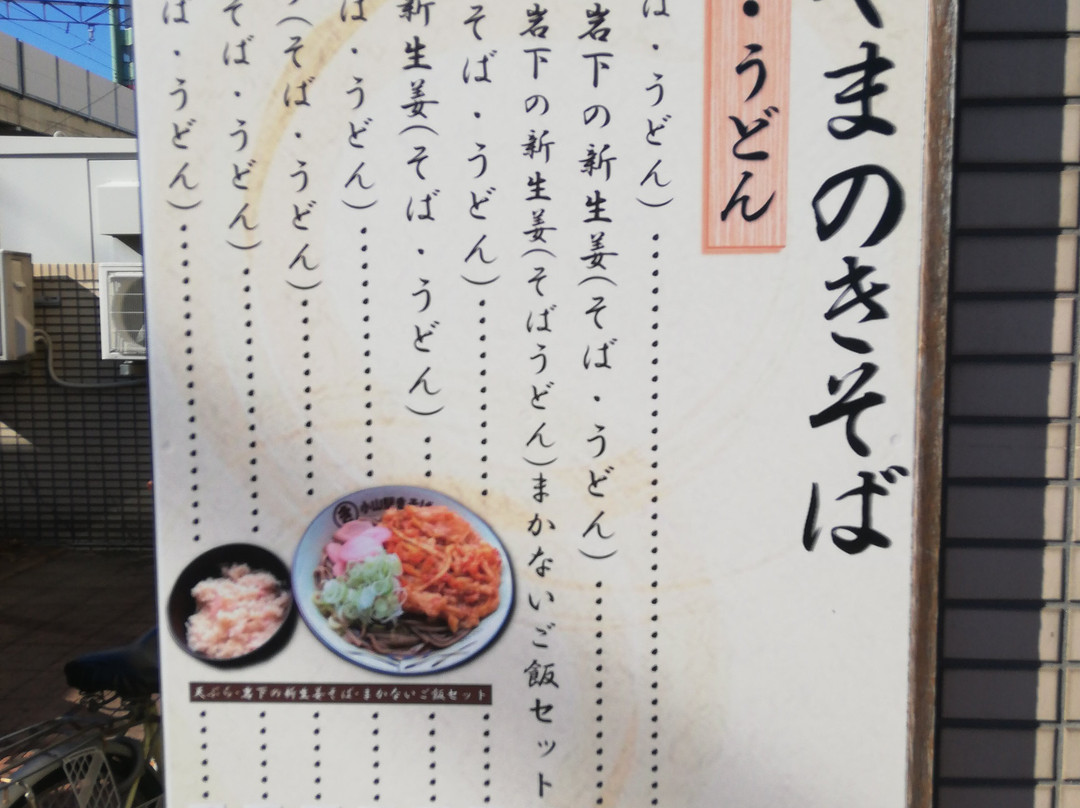 やまのきそば
・うどん
ば・うどん)
岩下の新生姜(そば・うどん)
岩下の新生姜(そばうどん)まかないご飯セット
そば・うどん)
新生姜(そば・うどん)
ば・うどん)
(そば・うどん)
そば・うどん)
ば・うどん)
小山駅
天ぷら・岩下の新生姜そば・まかないご飯セット